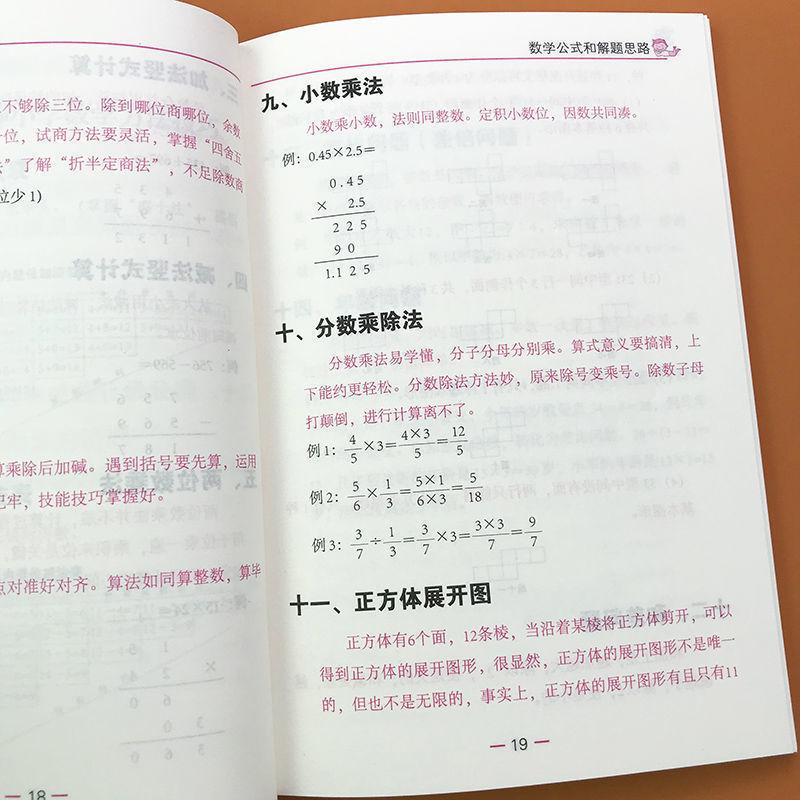 不够除三位。除到哪位商哪位，余数
位，试商方法要灵活，掌握“四舍五
”了解“折半定商法”，不足除数商
位少1)
算乘除后加碱。遇到括号要先算，运用
牢，技能技巧掌握好。
点对准好对齐。算法如同算整数，算毕
— 18 —
数学公式和解题思路
九、小数乘法
小数乘小数，法则同整数。定积小数位，因数共同凑。
例：0.45×2.5=
0.45
× 2.5
225
90
1.125
十、分数乘除法
分数乘法易学懂，分子分母分别乘。算式意义要搞清，上
下能约更轻松。分数除法方法妙，原来除号变乘号。除数子母
打颠倒，进行计算离不了。
例1：4/5×3=4×3/5=12/5
例2：5/6×1/3=5×1/6×3=5/18
例3：3/7÷1/3=3/7×3=3×3/7=9/7
十一、正方体展开图
正方体有6个面，12条棱，当沿着某棱将正方体剪开，可以
得到正方体的展开图形，很显然，正方体的展开图形不是唯一
的，但也不是无限的，事实上，正方体的展开图形有且只有11
— 19 —